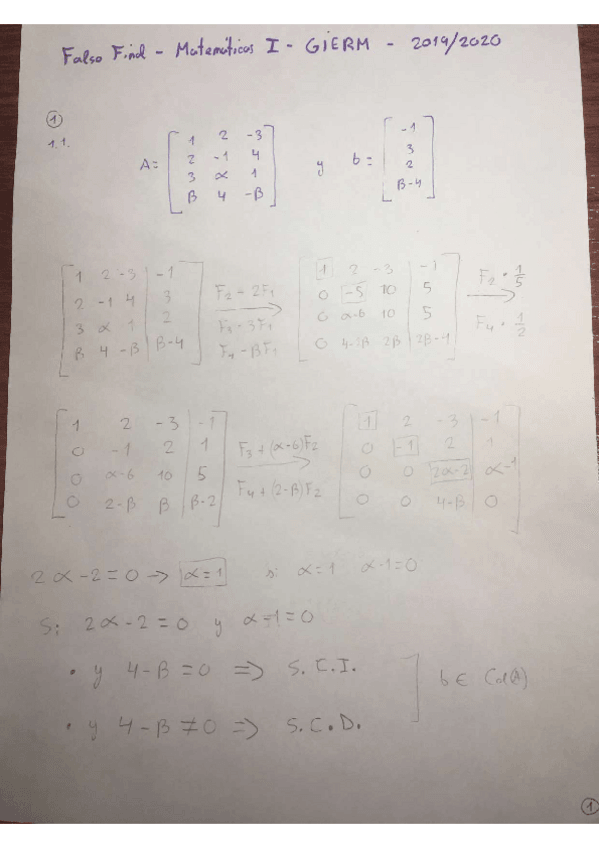 Falso Final - Matemáticas I - GIERM - 2019/2020
1
1.1.
A = [ 1 2 -3 ; 2 -1 4 ; 3 α 1 ; β 4 -β ] y b = [ -1 ; 3 ; 2 ; β-4 ]
[ 1 2 -3 | -1 ; 2 -1 4 | 3 ; 3 α 1 | 2 ; β 4 -β | β-4 ] F2 - 2F1 F3 - 3F1 F4 - βF1 → [ 1 2 -3 | -1 ; 0 -5 10 | 5 ; 0 α-6 10 | 5 ; 0 4-2β 2β | 2β-4 ] F2 · 1/5 F4 · 1/2 →
[ 1 2 -3 | -1 ; 0 -1 2 | 1 ; 0 α-6 10 | 5 ; 0 2-β β | β-2 ] F3 + (α-6)F2 F4 + (2-β)F2 → [ 1 2 -3 | -1 ; 0 -1 2 | 1 ; 0 0 2α-2 | α-1 ; 0 0 4-β | 0 ]
2α-2=0 → α=1 si α=1 α-1=0
Si 2α-2=0 y α-1=0
• y 4-β=0 => S.C.I.
b ∈ Col(A)
• y 4-β≠0 => S.C.D.
1